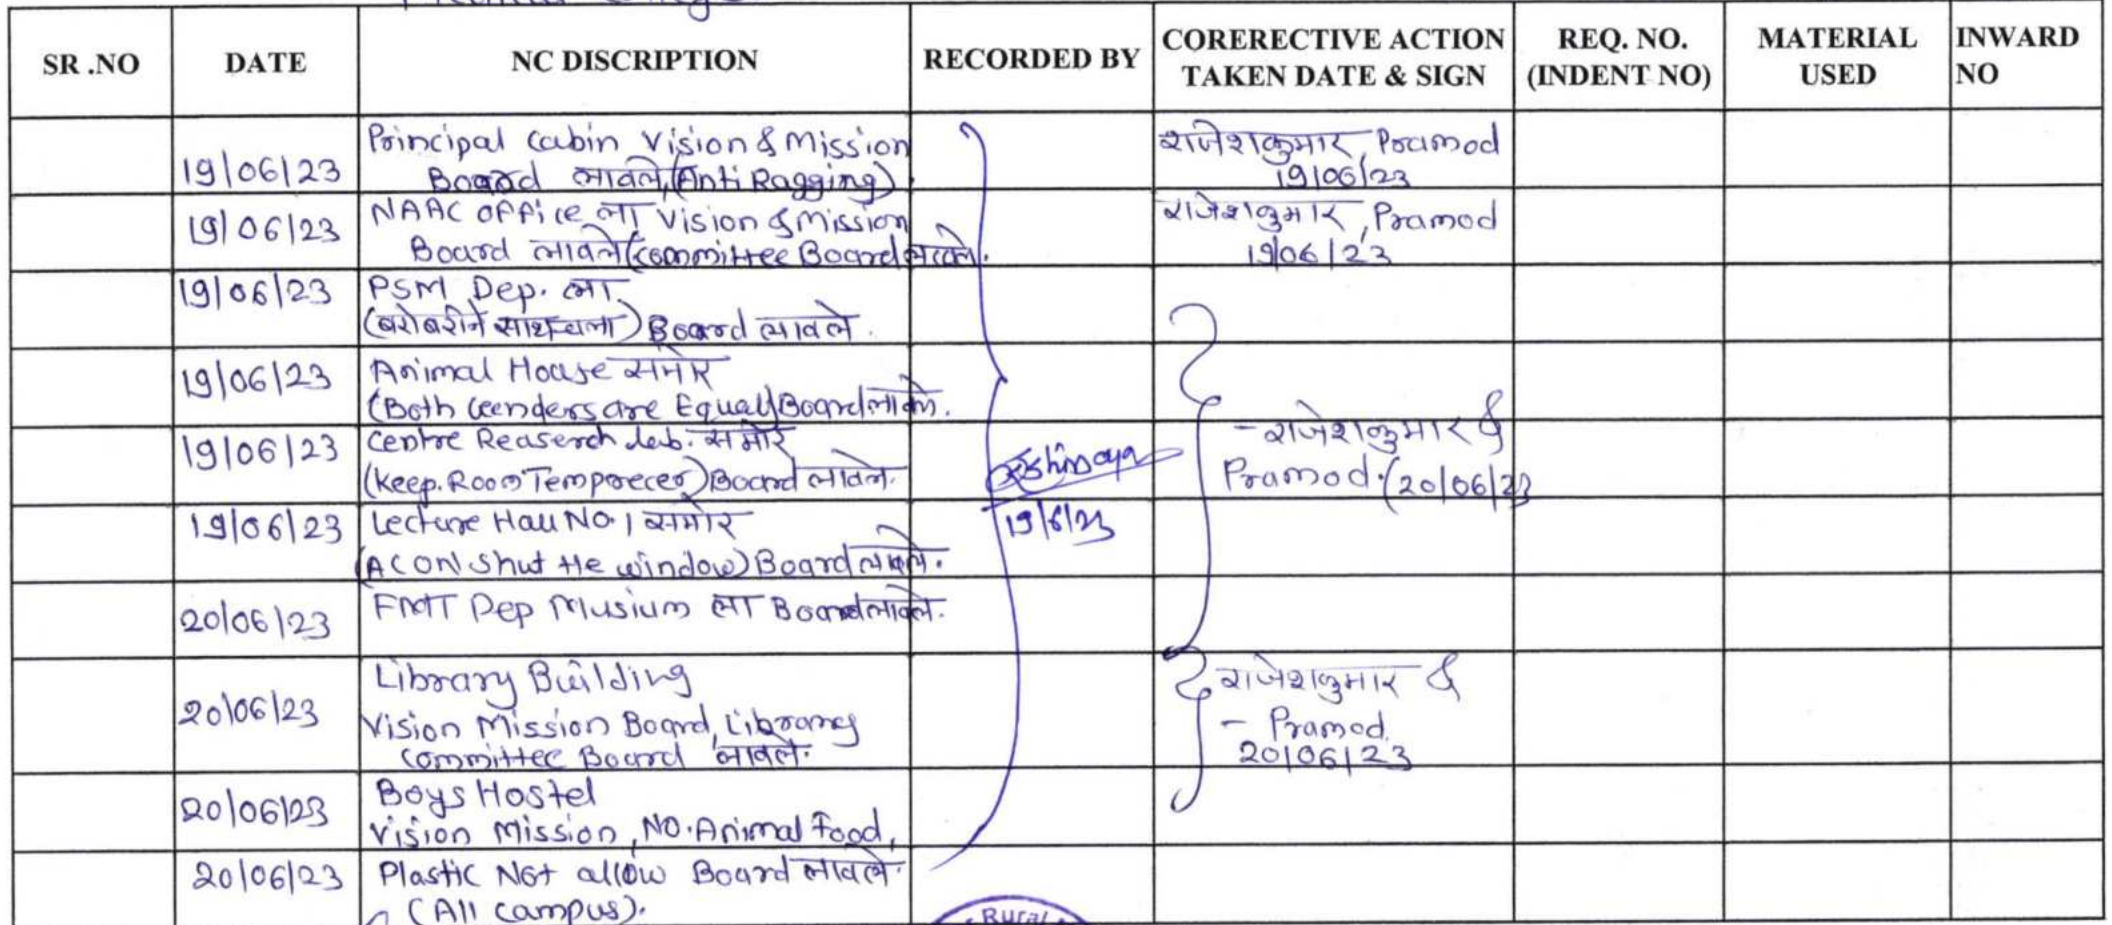 SR .NO DATE NC DISCRIPTION RECORDED BY CORERECTIVE ACTION TAKEN DATE & SIGN REQ. NO. (INDENT NO) MATERIAL USED INWARD NO
19/06/23 Principal Cabin Vision & Mission राजेशकुमार, Pramod
Board लावले, (Anti Ragging) 19/06/23
19/06/23 NAAC office ला Vision & Mission राजेशकुमार, Pramod
Board लावले (committee Board लावले. 19/06/23
19/06/23 PSM Dep. ला
(बरोबरीने साथ चला) Board लावले.
19/06/23 Animal House समोर
(Both Genders are Equal) Board लावले.
19/06/23 Centre Reaserch Lab. समोर - राजेशकुमार &
(Keep. Room Temporecer) Board लावले. Pramod. (20/06/23
19/06/23 Lecture Hall No. 1 समोर 19/6/23
(AC ON Shut the window) Board लावले.
20/06/23 FMT Dep Musium ला Board लावले.
Library Building राजेशकुमार &
20/06/23 Vision Mission Board, Library - Pramod.
Committee Board लावले. 20/06/23
20/06/23 Boys Hostel
Vision Mission, NO. Animal Food,
20/06/23 Plastic Not allow Board लावले.
(All campus).
Rural